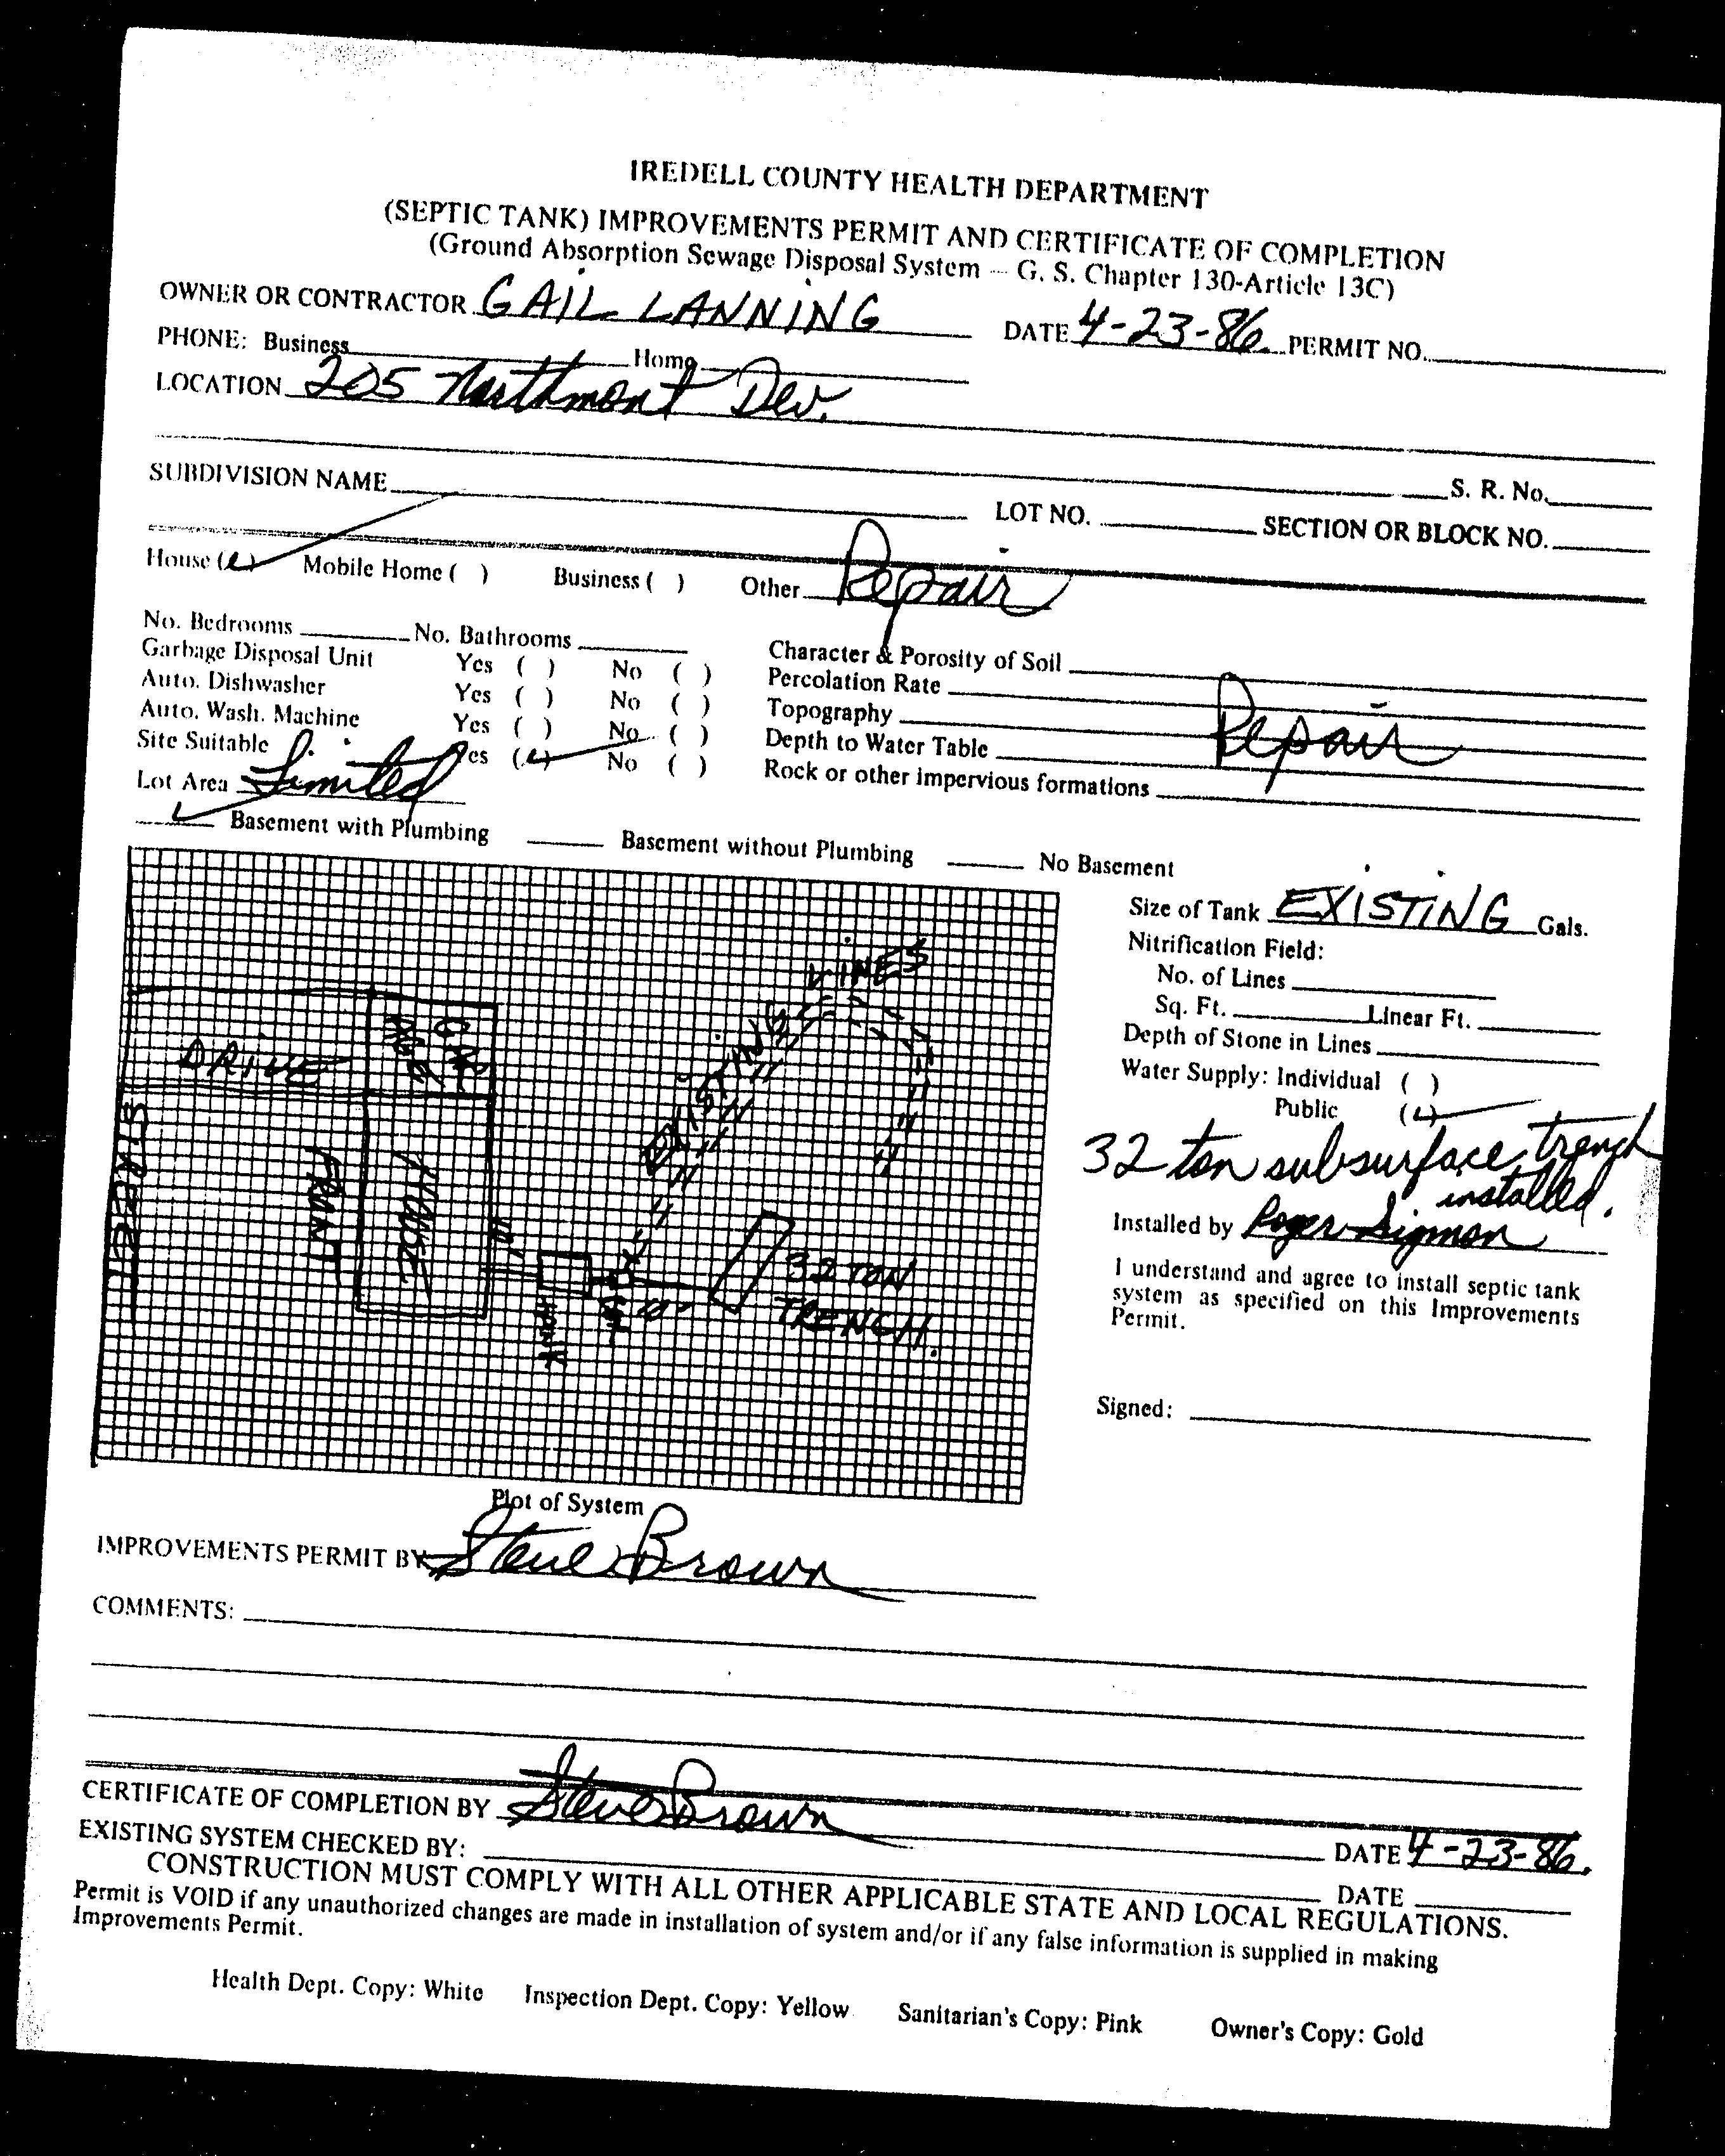 IREDELL COUNTY HEALTH DEPARTMENT
(SEPTIC TANK) IMPROVEMENTS PERMIT AND CERTIFICATE OF COMPLETION
(Ground Absorption Sewage Disposal System — G. S. Chapter 130-Article 13C)
OWNER OR CONTRACTOR GAIL LANNING DATE 4-23-86 PERMIT NO.
PHONE: Business Home
LOCATION 205 Northmont Dev.
S. R. No.
SUBDIVISION NAME LOT NO. SECTION OR BLOCK NO.
House (✓) Mobile Home ( ) Business ( ) Other Repair
No. Bedrooms No. Bathrooms
Garbage Disposal Unit Yes ( ) No ( )
Auto. Dishwasher Yes ( ) No ( )
Auto. Wash. Machine Yes ( ) No ( )
Site Suitable Yes (✓) No ( )
Lot Area Limited
Character & Porosity of Soil
Percolation Rate
Topography Repair
Depth to Water Table
Rock or other impervious formations
✓ Basement with Plumbing Basement without Plumbing No Basement
EXISTING LINES
DRIVE
GARAGE
STREET
FRONT
HOUSE
10'
TANK
32 TON
TRENCH.
Plot of System
Size of Tank EXISTING Gals.
Nitrification Field:
No. of Lines
Sq. Ft. Linear Ft.
Depth of Stone in Lines
Water Supply: Individual ( )
Public (✓)
32 ton subsurface trench
installed.
Installed by Roger Sigmon
I understand and agree to install septic tank
system as specified on this Improvements
Permit.
Signed:
IMPROVEMENTS PERMIT BY Steve Brown
COMMENTS:
CERTIFICATE OF COMPLETION BY Steve Brown DATE 4-23-86.
EXISTING SYSTEM CHECKED BY: DATE
CONSTRUCTION MUST COMPLY WITH ALL OTHER APPLICABLE STATE AND LOCAL REGULATIONS.
Permit is VOID if any unauthorized changes are made in installation of system and/or if any false information is supplied in making
Improvements Permit.
Health Dept. Copy: White Inspection Dept. Copy: Yellow Sanitarian's Copy: Pink Owner's Copy: Gold